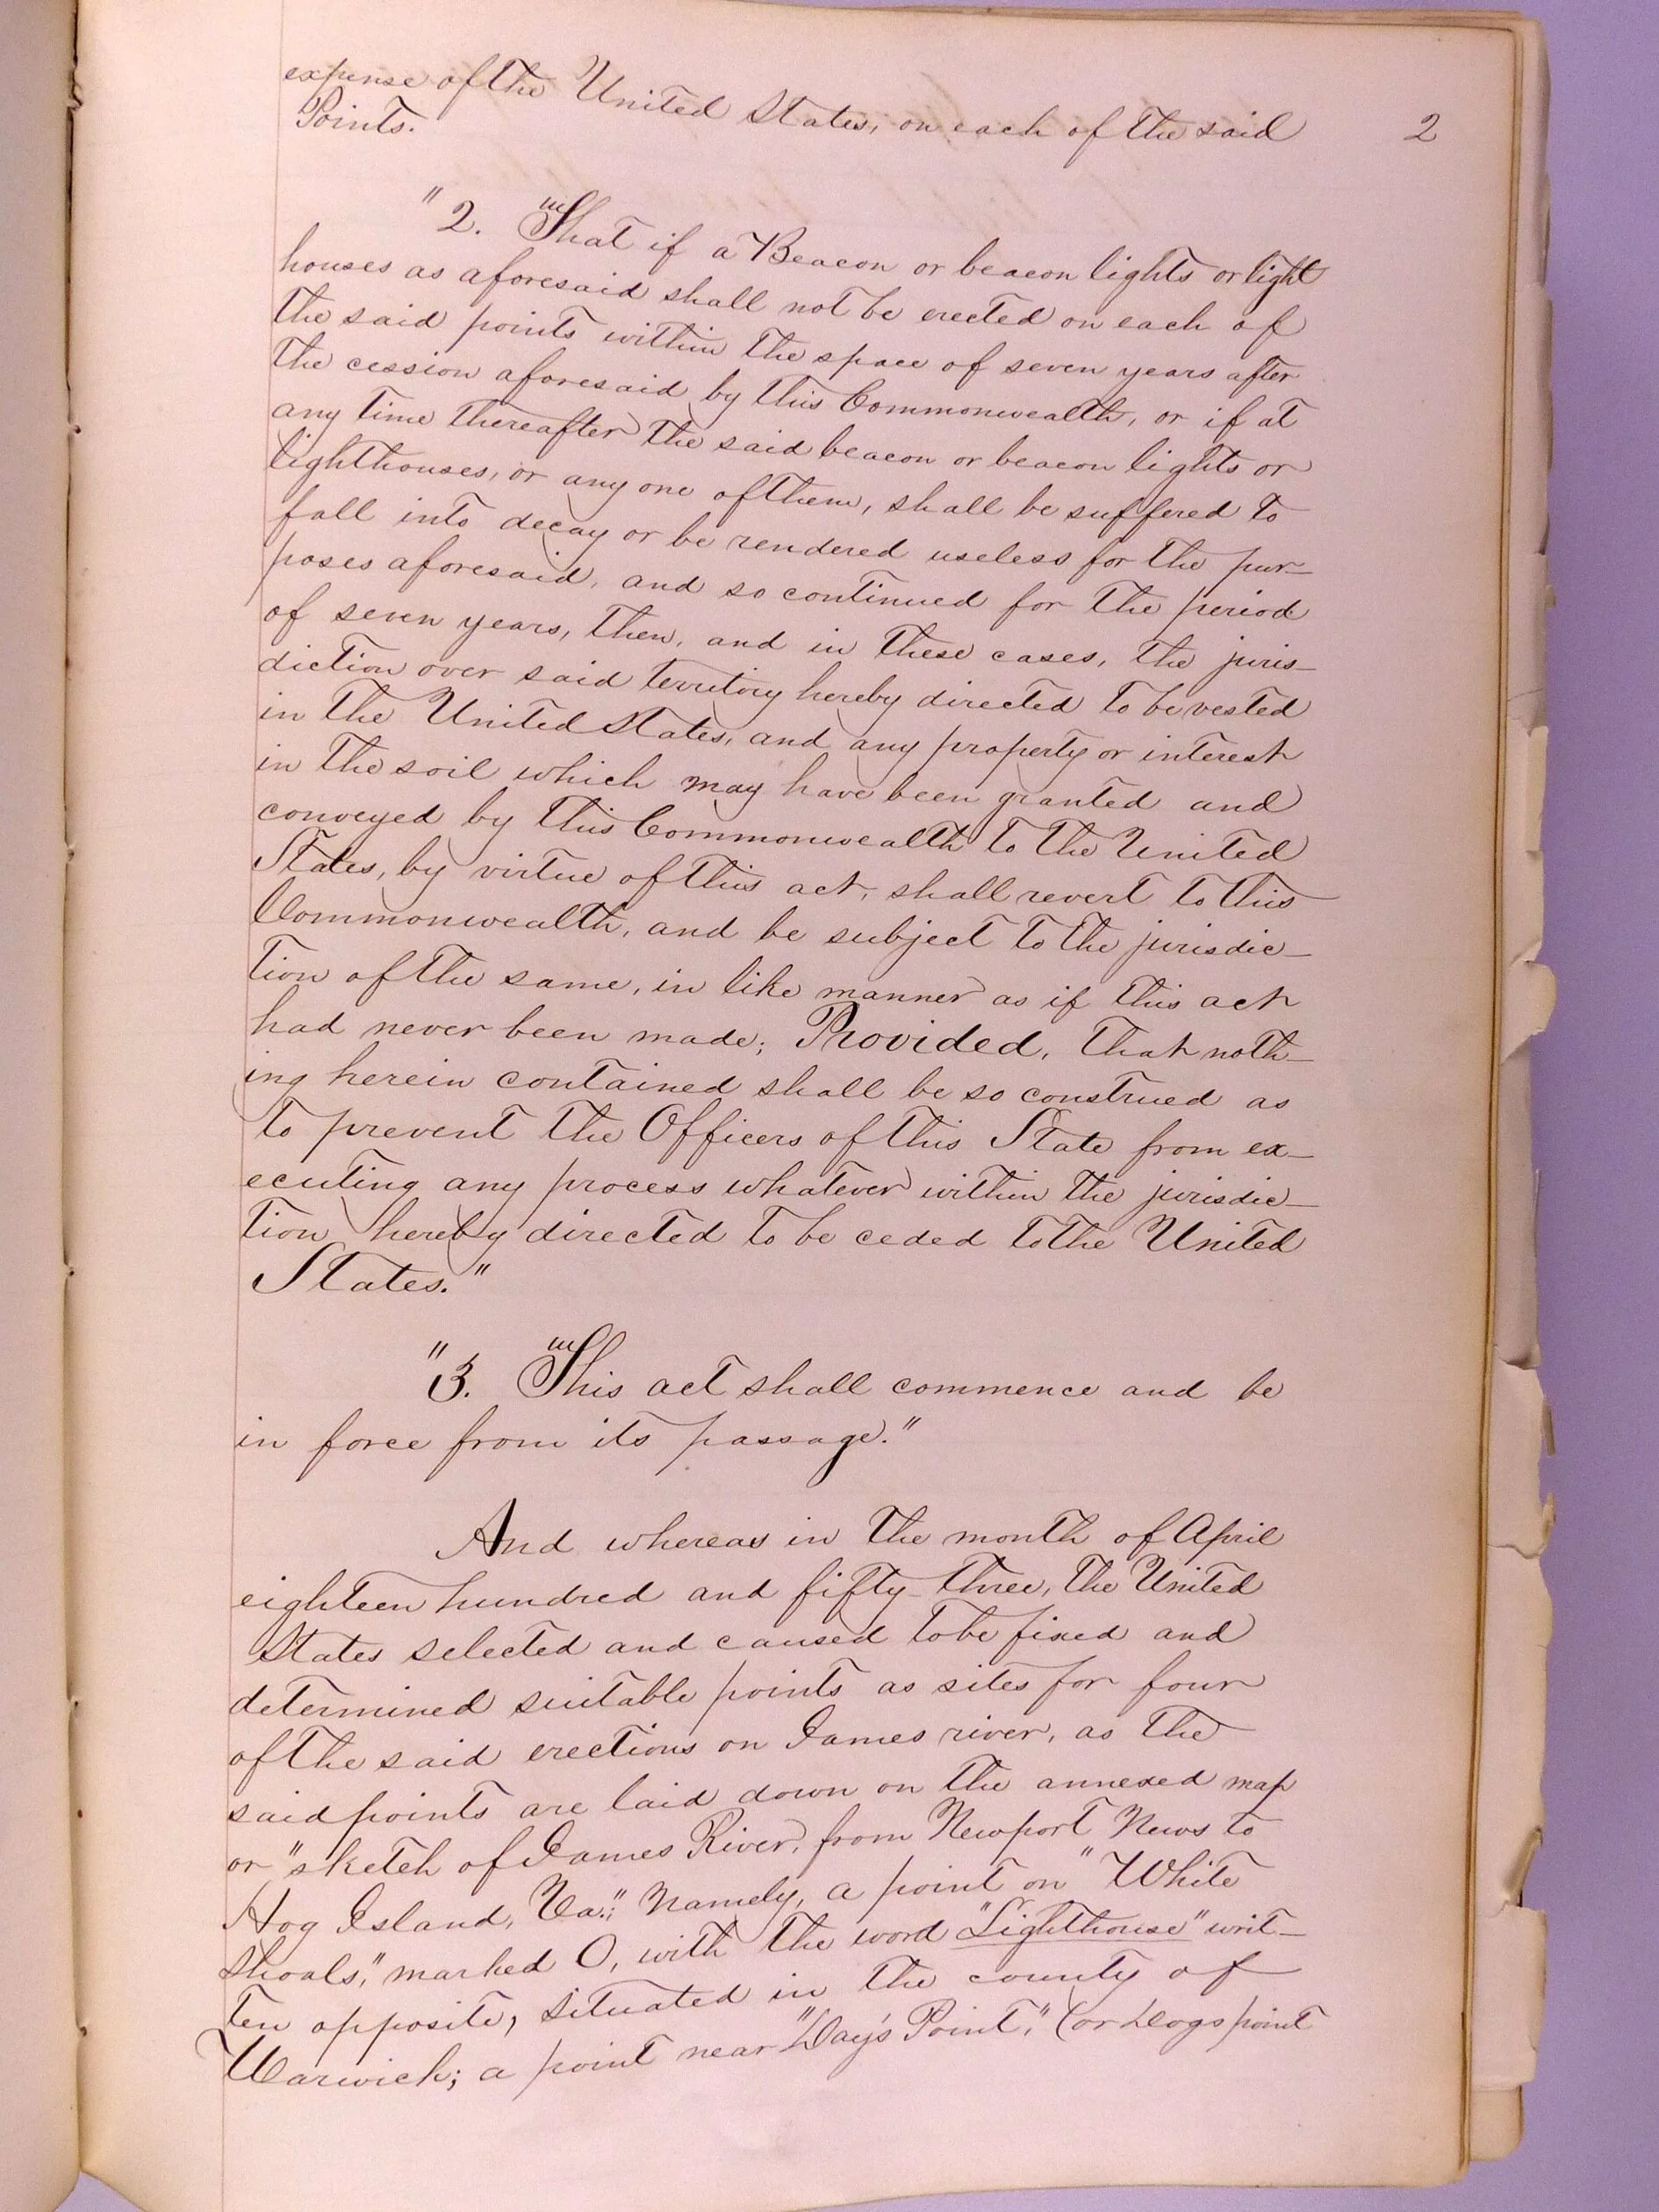 expense of the United States, on each of the said
Points.
2
"2. "'That if a Beacon or beacon lights or light
houses as aforesaid shall not be erected on each of
the said points within the space of seven years after
the cession aforesaid by this Commonwealth, or if at
any time thereafter the said beacon or beacon lights or
lighthouses, or any one of them, shall be suffered to
fall into decay or be rendered useless for the pur-
poses aforesaid, and so continued for the period
of seven years, then, and in these cases, the juris-
diction over said territory hereby directed to be vested
in the United States, and any property or interest
in the soil which may have been granted and
conveyed by this Commonwealth to the United
States, by virtue of this act, shall revert to this
Commonwealth, and be subject to the jurisdic-
tion of the same, in like manner as if this act
had never been made; Provided, that noth-
ing herein contained shall be so construed as
to prevent the Officers of this State from ex-
ecuting any process whatever within the jurisdic-
tion hereby directed to be ceded to the United
States."
"3. "'This act shall commence and be
in force from its passage."
And whereas in the month of April
eighteen hundred and fifty-three, the United
States selected and caused to be fixed and
determined suitable points as sites for four
of the said erections on James river, as the
said points are laid down on the annexed map
or "sketch of James River, from Newport News to
Hog Island, Va."; Namely, a point on "White
Shoals," marked O, with the word "Lighthouse" writ-
ten opposite, situated in the county of
Warwick; a point near "Day's Point," (or Dogs point